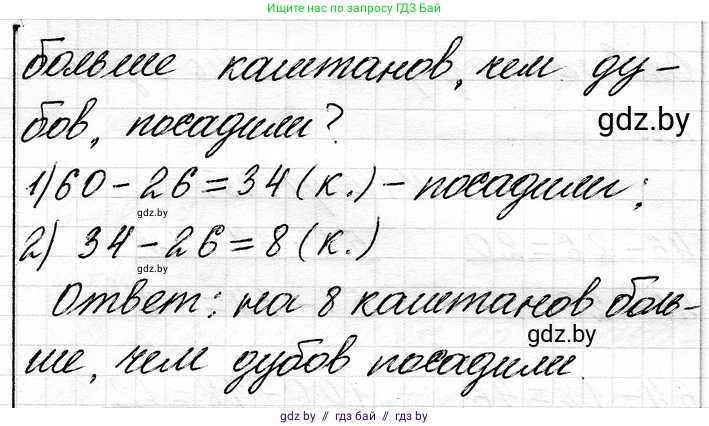 Ищите нас по запросу ГДЗ Бай
больше каштанов, чем ду-
бов, посадили?
gdz.by
1) 60 - 26 = 34 (к.) - посадили;
gdz.by
2) 34 - 26 = 8 (к.)
gdz.by
Ответ: на 8 каштанов боль-
gdz.by
ше, чем дубов посадили.
gdz.by // гдз бай // гдз.by